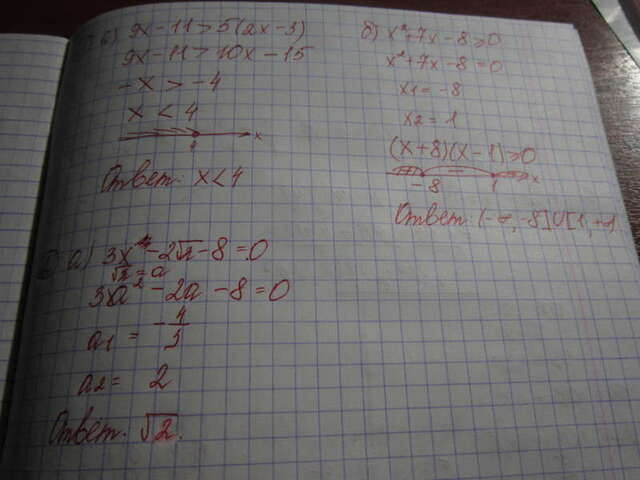 б) 9x-11>5(2x-3)
9x-11>10x-15
-x>-4
x<4
x
4
Ответ: x<4
б) x²+7x-8≥0
x²+7x-8=0
x1=-8
x2=1
(x+8)(x-1)≥0
-8 1 x
Ответ (-∞,-8]U[1,+∞)
а) 3x-2√x-8=0
√x=a
3a²-2a-8=0
a1=-4/3
a2=2
Ответ. √2.